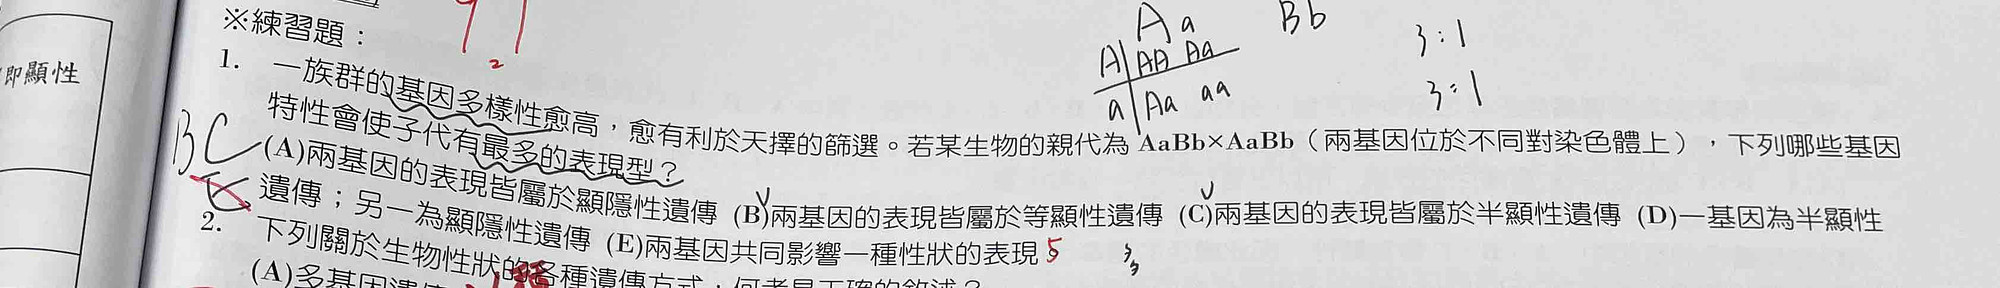 即顯性
※練習題：
Aa Bb
A AA Aa
a Aa aa
3:1
3:1
1. 一族群的基因多樣性愈高，愈有利於天擇的篩選。若某生物的親代為 AaBb×AaBb（兩基因位於不同對染色體上），下列哪些基因
特性會使子代有最多的表現型？
BC
(A)兩基因的表現皆屬於顯隱性遺傳 (B)兩基因的表現皆屬於等顯性遺傳 (C)兩基因的表現皆屬於半顯性遺傳 (D)一基因為半顯性
遺傳；另一為顯隱性遺傳 (E)兩基因共同影響一種性狀的表現 5
3
3
2. 下列關於生物性狀的各種遺傳方式，何者是正確的敘述？
(A)多基因遺傳